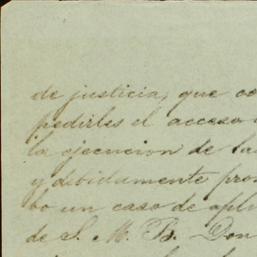 de justicia, que co
pedirles el acceso
la ejecucion de
y debidamente pro
un caso de apl
de S. M. B. Don